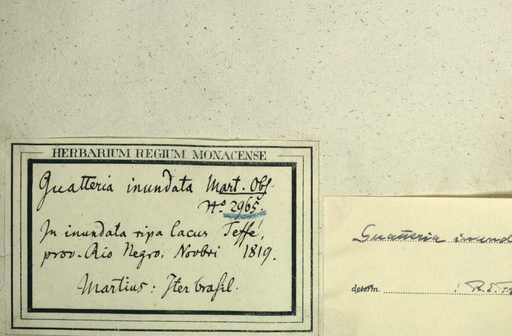 HERBARIUM REGIUM MONACENSE
Guatteria inundata Mart. Obs.
No 2965.
In inundata ripa lacus Teffé,
prov. Rio Negro. Novbri 1819.
Martius: Iter brasil.
Guatteria inund
determ.